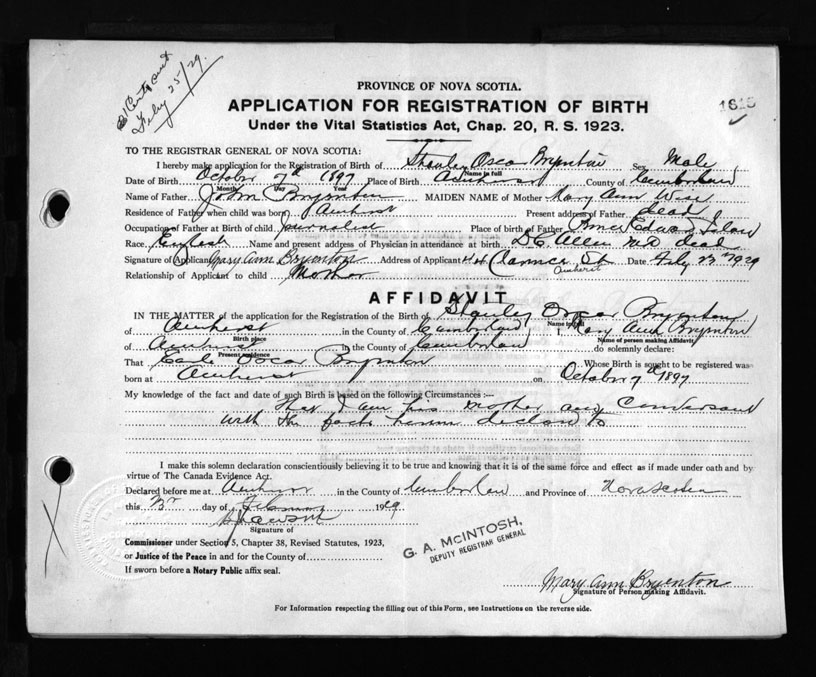 Feby 25/29.
PROVINCE OF NOVA SCOTIA.
APPLICATION FOR REGISTRATION OF BIRTH
1615
Under the Vital Statistics Act, Chap. 20, R. S. 1923.
TO THE REGISTRAR GENERAL OF NOVA SCOTIA:
I hereby make application for the Registration of Birth of Stanley Oscar Bryenton Sex Male
Name in full
Date of Birth October 7th 1897 Place of Birth Amherst County of Cumberland
Month Day Year
Name of Father John Bryenton MAIDEN NAME of Mother Mary Ann Wise
Residence of Father when child was born Amherst Present address of Father dead
Occupation of Father at Birth of child journalist Place of birth of Father Prince Edward Island
Race English Name and present address of Physician in attendance at birth D C Allen M D dead
Signature of Applicant Mary Ann Bryenton Address of Applicant Clarence St Date Feby 23rd 1929
Amherst
Relationship of Applicant to child Mother
AFFIDAVIT
IN THE MATTER of the application for the Registration of the Birth of Stanley Oscar Bryenton
Name in full
of Amherst in the County of Cumberland I, Mary Ann Bryenton
Birth place Name of person making Affidavit.
of Amherst in the County of Cumberland do solemnly declare:
Present residence
That Earle Oscar Bryenton Whose Birth is sought to be registered was
born at Amherst on October 7th 1897
My knowledge of the fact and date of such Birth is based on the following Circumstances :—
That I am his mother and conversant
with the facts herein declared to
I make this solemn declaration conscientiously believing it to be true and knowing that it is of the same force and effect as if made under oath and by
virtue of The Canada Evidence Act.
Declared before me at Amherst in the County of Cumberland and Province of Nova Scotia
this 23rd day of February 1929
Signature of
Commissioner under Section 5, Chapter 38, Revised Statutes, 1923,
or Justice of the Peace in and for the County of
If sworn before a Notary Public affix seal.
G. A. McINTOSH,
DEPUTY REGISTRAR GENERAL
Mary Ann Bryenton
Signature of Person making Affidavit.
For Information respecting the filling out of this Form, see Instructions on the reverse side.